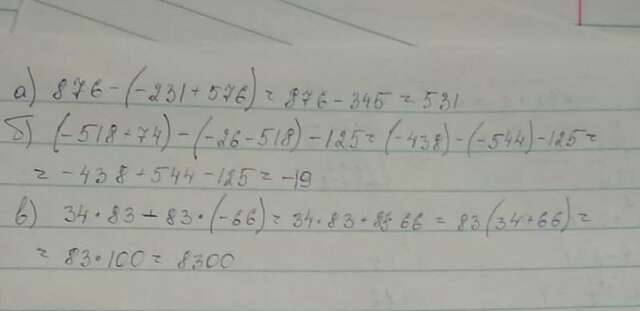 а) 876 - (-231 + 576) = 876 - 345 = 531
б) (-518 + 74) - (-26 - 518) - 125 = (-438) - (-544) - 125 =
= -438 + 544 - 125 = -19
в) 34 · 83 - 83 · (-66) = 34 · 83 + 83 66 = 83 (34 + 66) =
= 83 · 100 = 8300